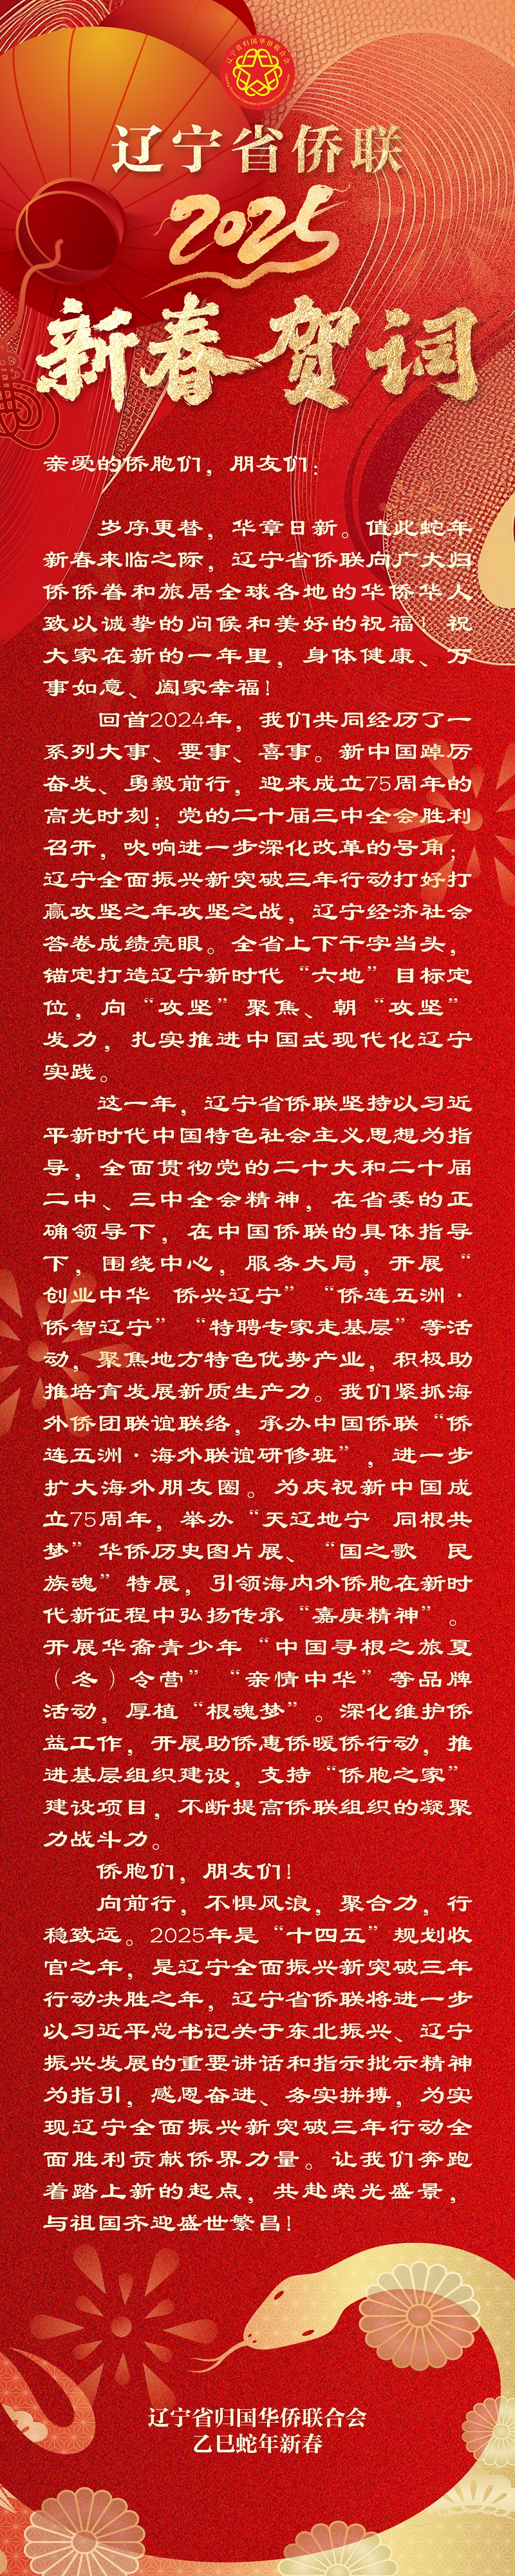 辽宁省归国华侨联合会
辽宁省侨联
2025
新春贺词
亲爱的侨胞们，朋友们：
岁序更替，华章日新。值此蛇年
新春来临之际，辽宁省侨联向广大归
侨侨眷和旅居全球各地的华侨华人
致以诚挚的问候和美好的祝福！祝
大家在新的一年里，身体健康、万
事如意、阖家幸福！
回首2024年，我们共同经历了一
系列大事、要事、喜事。新中国踔厉
奋发、勇毅前行，迎来成立75周年的
高光时刻；党的二十届三中全会胜利
召开，吹响进一步深化改革的号角；
辽宁全面振兴新突破三年行动打好打
赢攻坚之年攻坚之战，辽宁经济社会
答卷成绩亮眼。全省上下干字当头，
锚定打造辽宁新时代“六地”目标定
位，向“攻坚”聚焦、朝“攻坚”
发力，扎实推进中国式现代化辽宁
实践。
这一年，辽宁省侨联坚持以习近
平新时代中国特色社会主义思想为指
导，全面贯彻党的二十大和二十届
二中、三中全会精神，在省委的正
确领导下，在中国侨联的具体指导
下，围绕中心，服务大局，开展“
创业中华 侨兴辽宁”“侨连五洲·
侨智辽宁”“特聘专家走基层”等活
动，聚焦地方特色优势产业，积极助
推培育发展新质生产力。我们紧抓海
外侨团联谊联络，承办中国侨联“侨
连五洲·海外联谊研修班”，进一步
扩大海外朋友圈。为庆祝新中国成
立75周年，举办“天辽地宁 同根共
梦”华侨历史图片展、“国之歌 民
族魂”特展，引领海内外侨胞在新时
代新征程中弘扬传承“嘉庚精神”。
开展华裔青少年“中国寻根之旅夏
（冬）令营”“亲情中华”等品牌
活动，厚植“根魂梦”。深化维护侨
益工作，开展助侨惠侨暖侨行动，推
进基层组织建设，支持“侨胞之家”
建设项目，不断提高侨联组织的凝聚
力战斗力。
侨胞们，朋友们！
向前行，不惧风浪，聚合力，行
稳致远。2025年是“十四五”规划收
官之年，是辽宁全面振兴新突破三年
行动决胜之年，辽宁省侨联将进一步
以习近平总书记关于东北振兴、辽宁
振兴发展的重要讲话和指示批示精神
为指引，感恩奋进、务实拼搏，为实
现辽宁全面振兴新突破三年行动全
面胜利贡献侨界力量。让我们奔跑
着踏上新的起点，共赴荣光盛景，
与祖国齐迎盛世繁昌！
辽宁省归国华侨联合会
乙巳蛇年新春